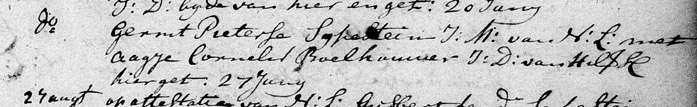 J: D: byde van hier en get: 20 Juny
do Gerrit Pieterse Sypestein J: M: van H: L: met
aagje Cornelis Boelhouwer J: D: van
hier get. 27 Juny
27 augt op attestatie van H: L: